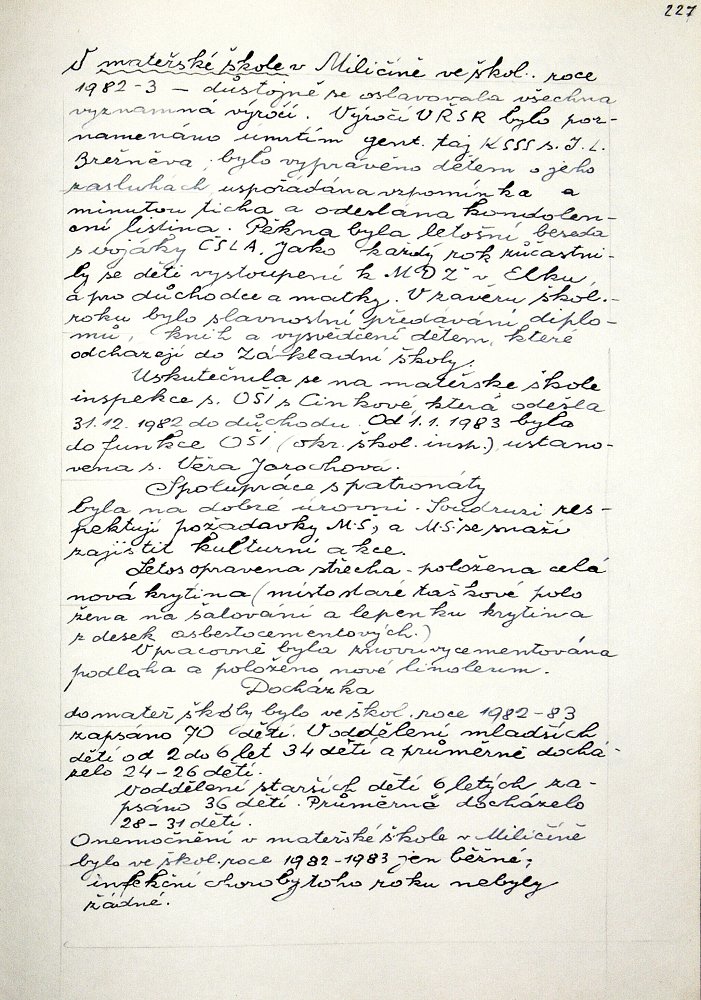 227
V mateřské škole v Miličíně ve škol. roce
1982-3 — důstojně se oslavovala všechna
významná výročí. Výročí VŘSR bylo poz-
namenáno úmrtím gent. taj KSSS s. J. L.
Brežněva, bylo vyprávěno dětem o jeho
zasluhách, uspořádána vzpomínka a
minutou ticha a odeslána kondolen-
ční listina. Pěkná byla letošní beseda
s vojáky ČSLA. Jako každý rok zůčastni-
ly se děti vystoupení k MDŽ v Elku,
a pro důchodce a matky. V závěru škol.-
roku bylo slavnostní předávání diplo-
mů, knih a vysvědčení dětem, které
odcházejí do Základní školy.
Uskutečnila se na mateřské škole
inspekce s. OŠI s Cinkové, která odešla
31.12. 1982 do důchodu. Od 1.1. 1983 byla
do funkce OŠI (okr. škol. insp.) ustano-
vena s. Věra Jarochová.
Spolupráce s patronáty
byla na dobré úrovni. Soudruzi res-
pektují požadavky M.Š, a MŠ se snaží
zajistit kulturní akce.
Letos opravena střecha - položena celá
nová krytina (místo staré taškové polo
žena na šalování a lepenku krytina
z desek asbestocementových.)
V pracovně byla znovu vycementována
podlaha a položeno nové linoleum.
Docházka
do mateř školy bylo ve škol. roce 1982-83
zapsáno 70 dětí. V oddělení mladších
dětí od 2 do 6 let 34 dětí a průměrně dochá-
zelo 24-26 dětí.
V oddělení starších dětí 6 letých za-
psáno 36 dětí. Průměrně docházelo
28-31 dětí.
Onemocnění v mateřské škole v Miličíně
bylo ve škol. roce 1982-1983 jen běžné;
infekční choroby toho roku nebyly
žádné.